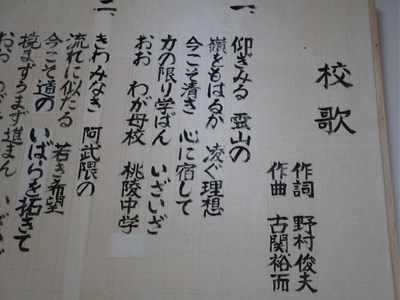 校歌
作詞 野村俊夫
作曲 古関裕而
一、
仰ぎみる 霊山の
嶺をもはるか 凌ぐ理想
今こそ清き 心に宿して
力の限り学ばん いざいざ
おお わが母校 桃陵中学
二、
きわみなき 阿武隈の
流れに似たる 若き希望
今こそ道の いばらを拓きて
撓まずうまず進まん いざい
おお わが